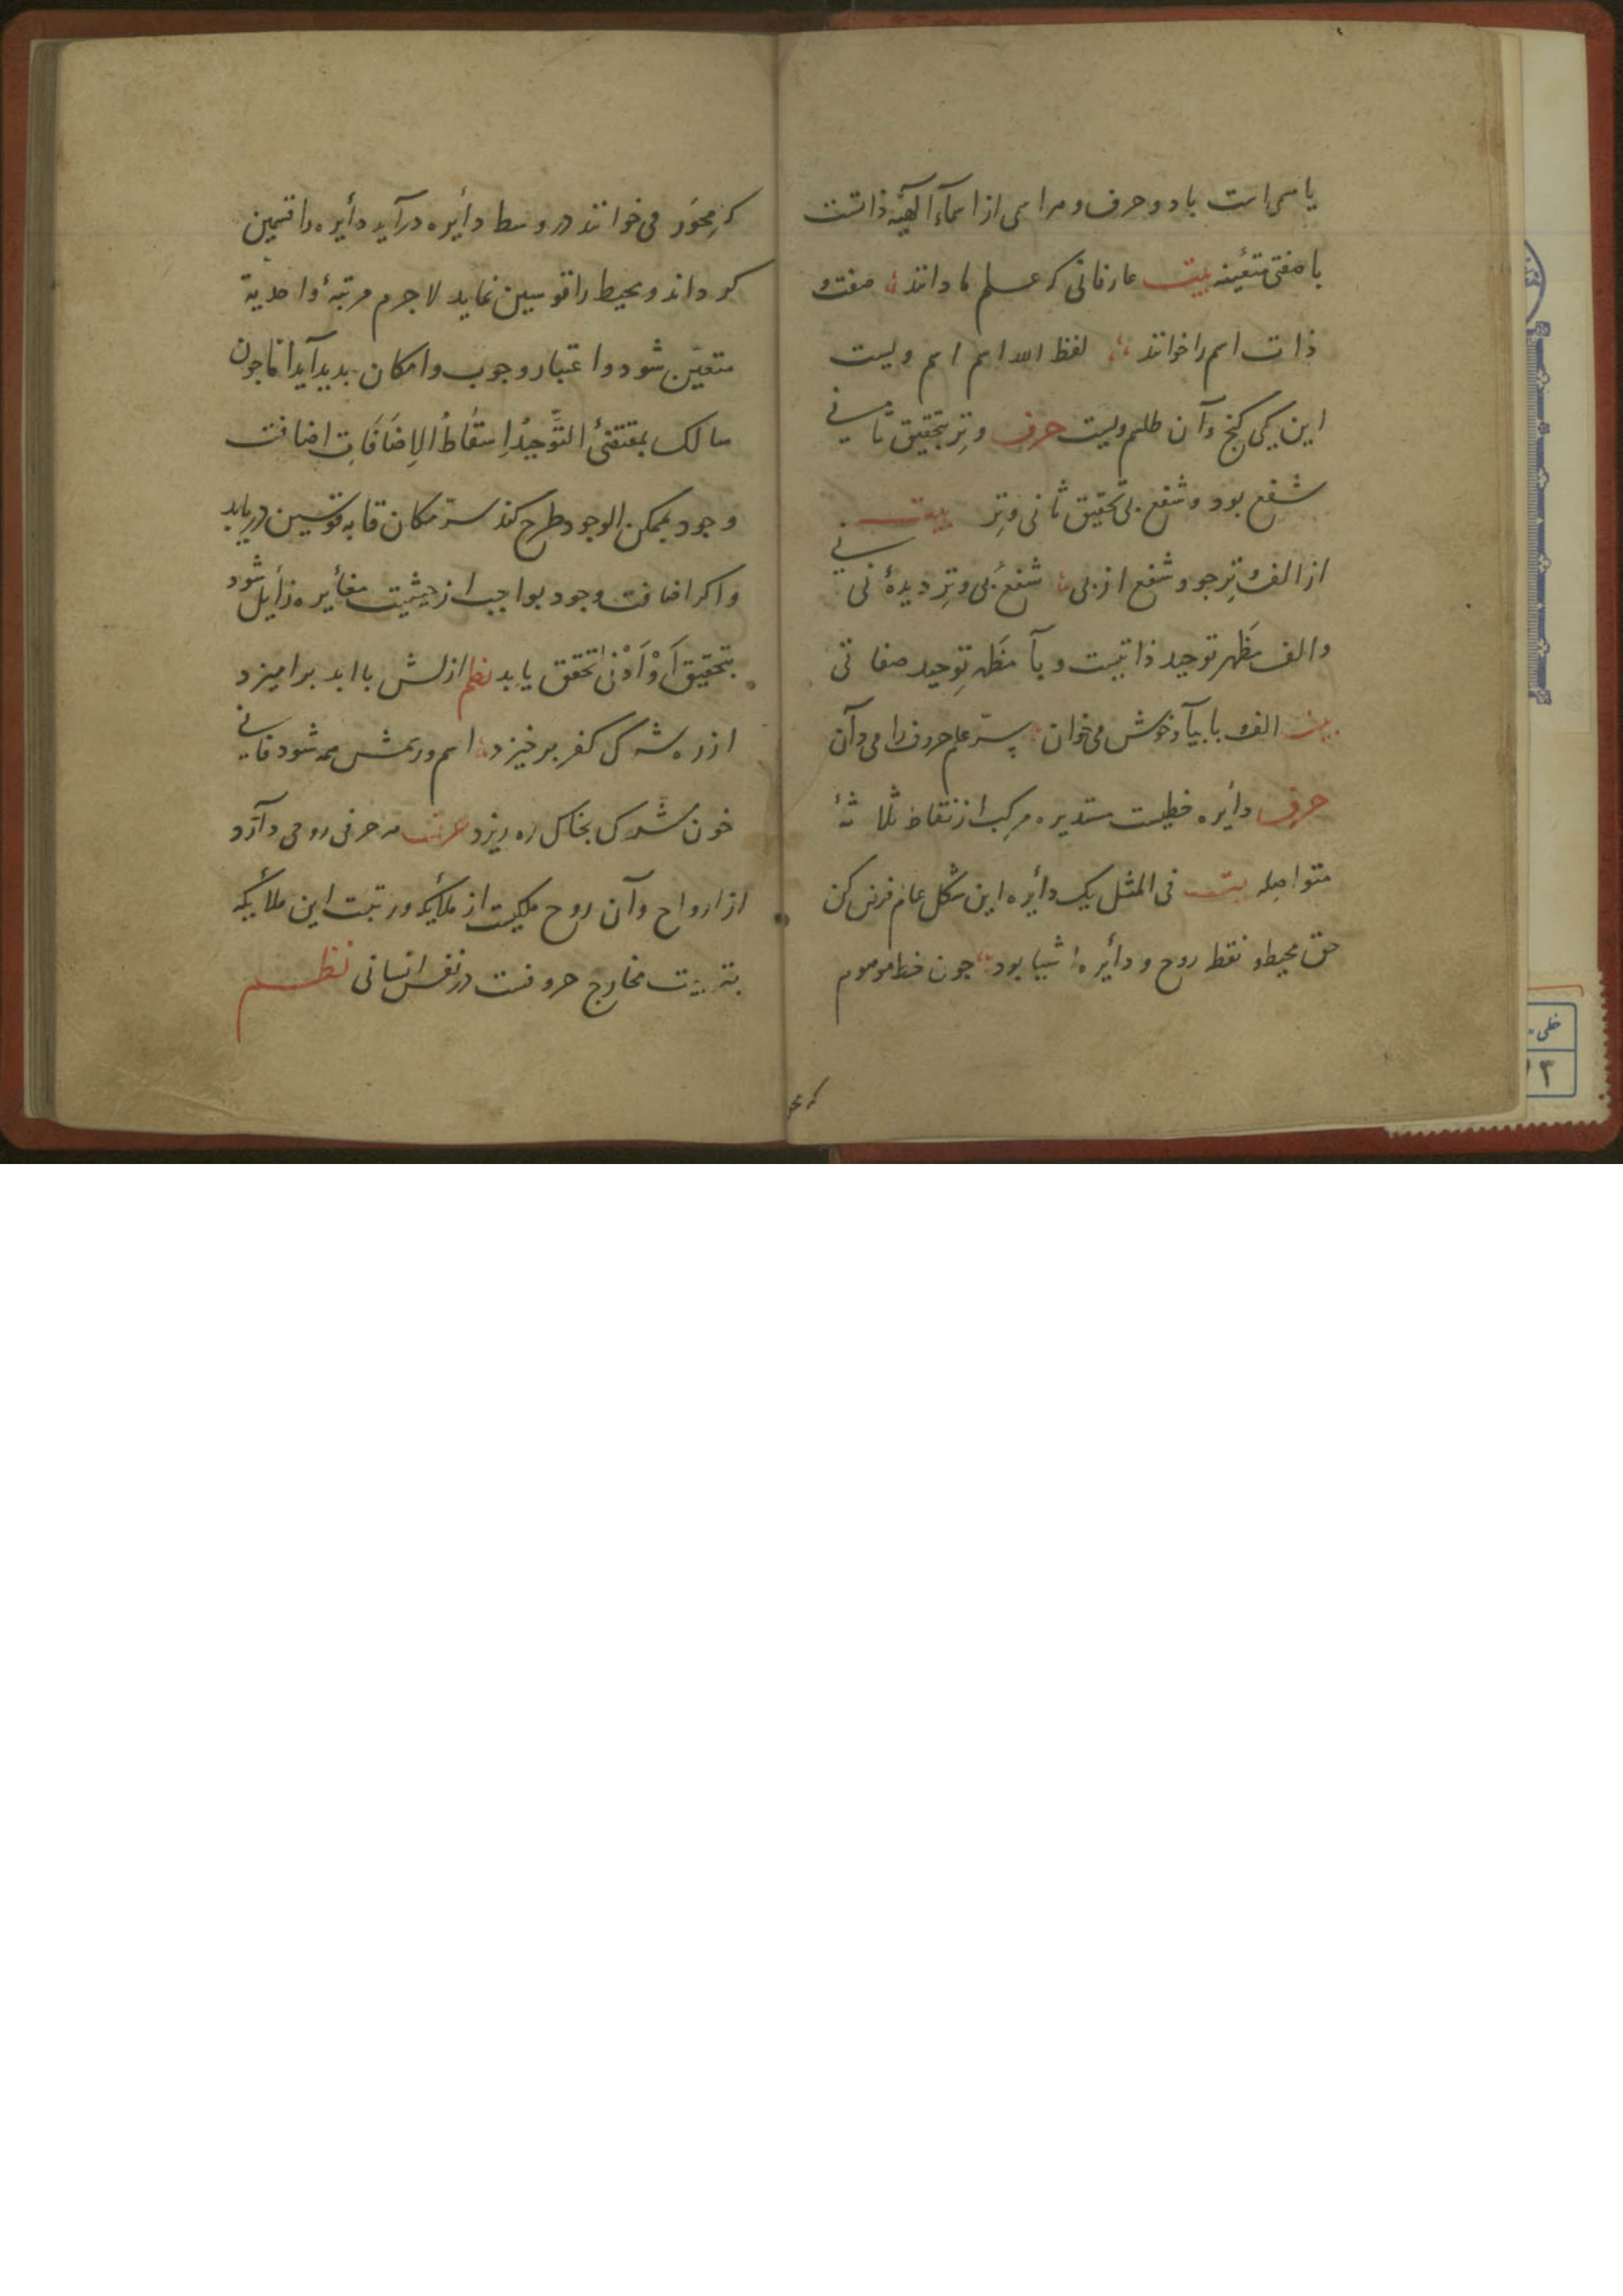 یا مسمی است با دو حرف و هر اسمی از اسماء الهیّه ذاتست
با صفتی متعیّنه بیت عارفانی که علم ما دانند صفت و
ذات اسم را خوانند لفظ الله اسم اسم ویست
این یکی گنج و آن طلسم ویست حرف وتر بتحقیق ثانی
شفع بود و شفع بی تحقیق ثانی وتر بیت
از الف وتر جو و شفع از بی شفع بی وتر دیدهٔ نی
والف مَظهر توحید ذاتیست و بآ مَظهر توحید صفاتی
بیت الف و با بیآ و خوش می خوان سرّ علم حروف را می دان
حرف دأیره خطیست مستدیره مرکب از نقاط ثلاثهٔ
متواصله بیت فی المثل یک دأیره این شکل عالم فرض کن
حق محیط و نقطه روح و دأیره اشیا بود چون خط موهوم
که مح
که مِحوَر می خوانند در وسط دأیره درآید دأیره را قسمین
کرداند و محیط را قوسین نماید لاجرم مرتبهٔ واحدیة
متعیّن شود و اعتبار وجوب و امکان بدید آید اما چون
سالک بمقتضئ التَّوحیدُ اِسقاطُ الاِضَافَاتِ اضافت
وجود بممکن الوجود طرح کند سرّ مکان قاب قوسین دریابد
و اکر اضافت وجود بواجب از حیثیت مغأیره زأیل شود
بتحقیق اَوْ اَدْنیٰ تحقق یابد نظم ازلش با ابد برامیزد
از ره شرک کفر برخیزد اسم و رسمش همه شود فانی
خون شرک بخاک ره ریزد حرف هر حرفی روحی دارد
از ارواح و آن روح ملکیست از ملأیکه و رتبت این ملأیکه
بترتیت مخارج حروفست در نفس انسانی نظم
خطی